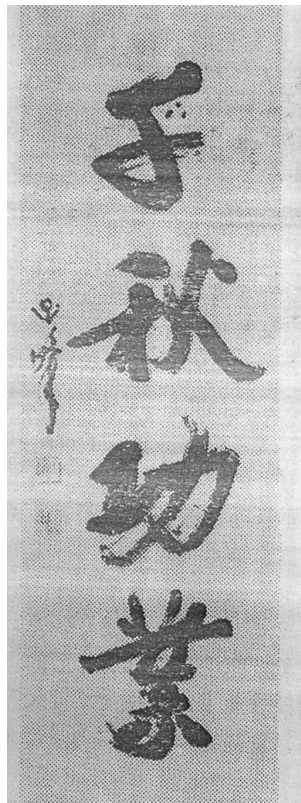 千秋功業